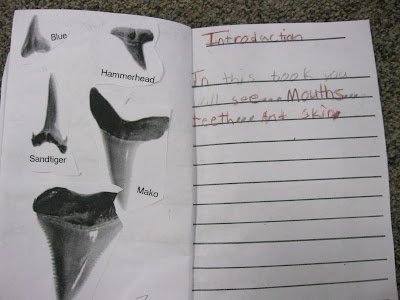 Blue
Hammerhead
Sandtiger
Mako
Introduction
In this book you
will see... Mouths...
teeth... and skin